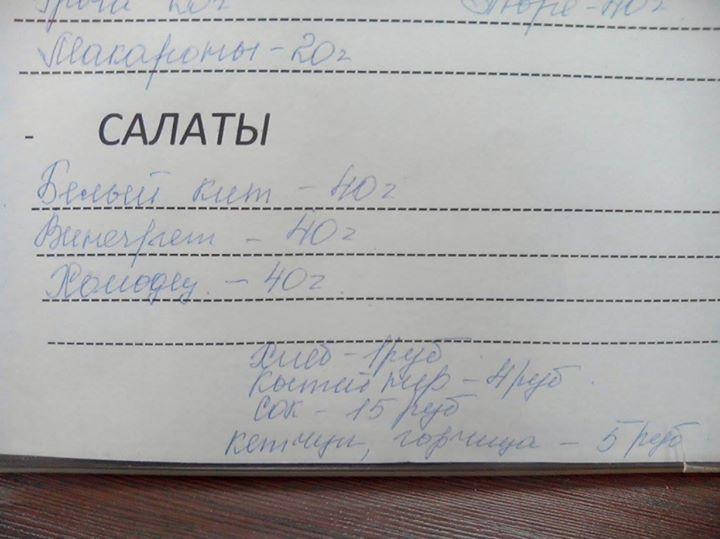 20г Пюре - 40г
Макароны - 20г
- САЛАТЫ
Белый кит - 40г
Винегрет - 40г
Холодец. - 40г.
Хлеб - 1руб
- 4руб.
Сок - 15 руб
Кетчуп, горчица - 5 руб